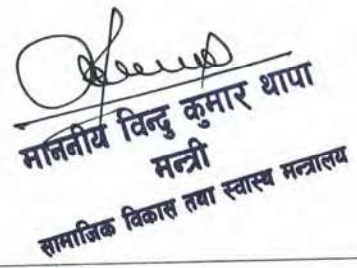 माननीय विन्दु कुमार थापा
मन्त्री
सामाजिक विकास तथा स्वास्थ मन्त्रालय